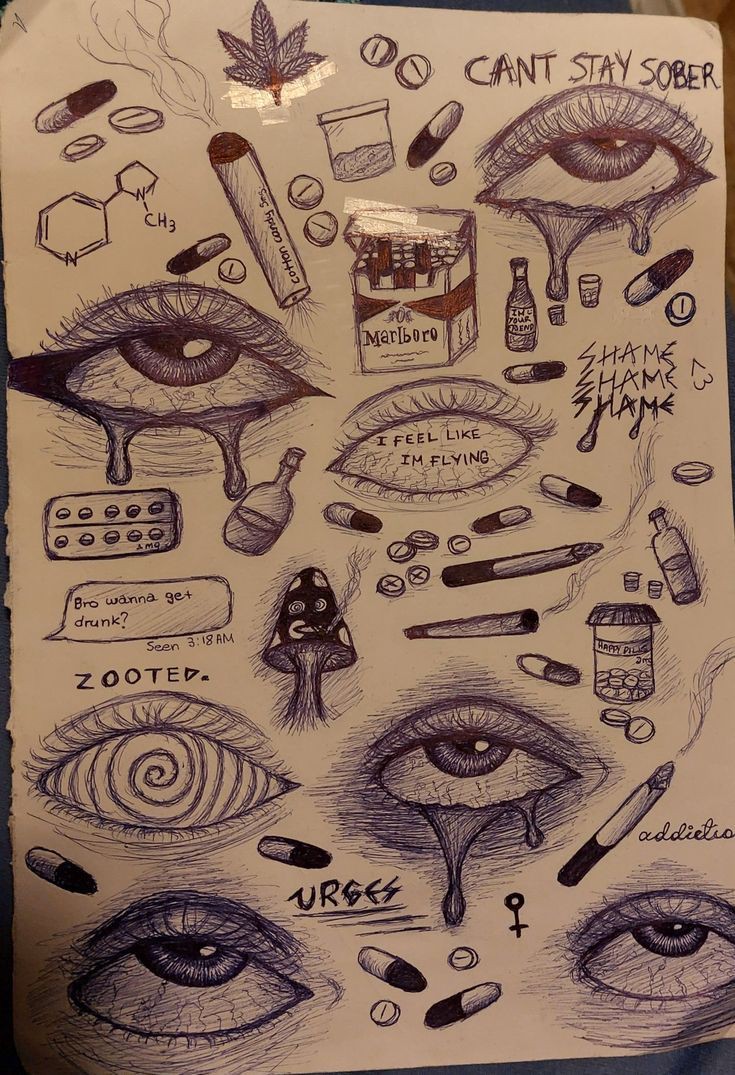 CANT STAY SOBER
N
CH3
N
cotton candy
Marlboro
YOUR
FRIEND
SHAME
SHAME
SHAME
<3
I FEEL LIKE
IM FLYING
1mg
Bro wanna get
drunk?
Seen 3:18AM
HAPPY PILLS
ZOOTED.
addictio
URGES